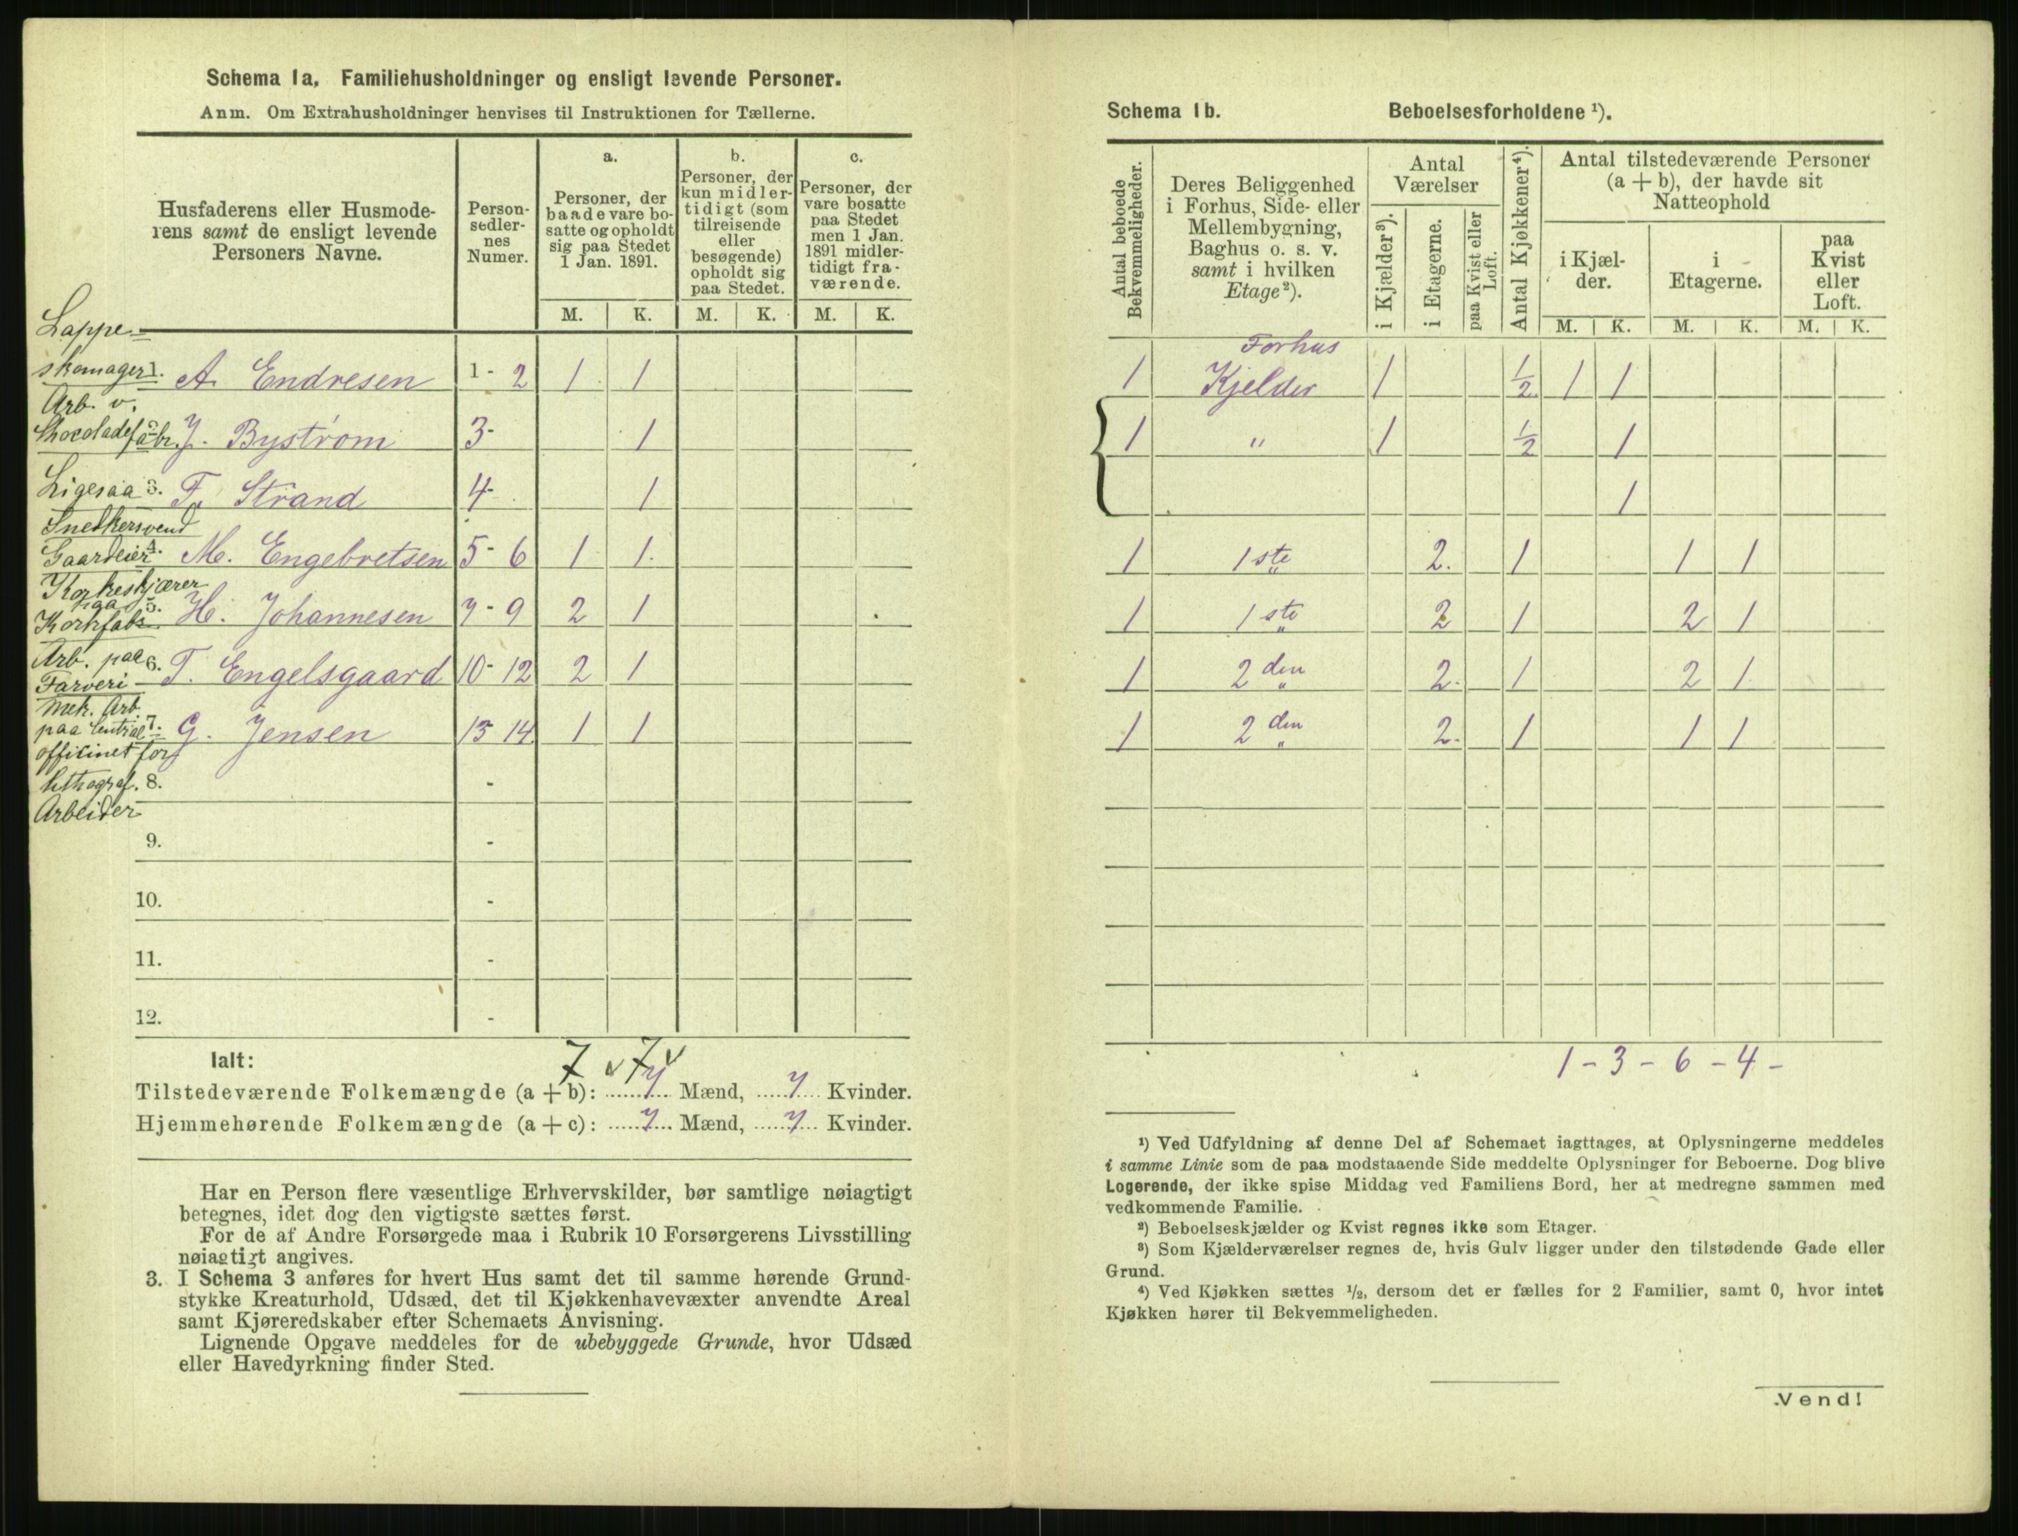 Schema 1a. Familiehusholdninger og ensligt levende Personer.
Anm. Om Extrahusholdninger henvises til Instruktionen for Tællerne.
Husfaderens eller Husmoderens samt de ensligt levende Personers Navne.
Personsedlernes Numer.
a. Personer, der baade vare bosatte og opholdt sig paa Stedet 1 Jan. 1891.
b. Personer, der kun midlertidigt (som tilreisende eller besøgende) opholdt sig paa Stedet.
c. Personer, der vare bosatte paa Stedet men 1 Jan. 1891 midlertidigt fraværende.
M. K. M. K. M. K.
Lappe-
skomager 1. A. Endresen 1 - 2 1 1
Arb. v.
Chocoladefabr. 2. J. Bystrøm 3 - 1
Ligesaa 3. F. Strand 4 - 1
Snedkersvend
Gaardeier 4. M. Engebretsen 5 - 6 1 1
Korkeskjærer
paa 5.
Korkfabr. H. Johannesen 7 - 9 2 1
Arb. paa 6.
Farveri T. Engelsgaard 10 - 12 2 1
mek. Arb.
paa Central 7. G. Jensen 13 14 1 1
officinet for
lithograf. 8. -
Arbeider
9. -
10. -
11. -
12. -
Ialt: 7 v 7 v
Tilstedeværende Folkemængde (a + b): 7 Mænd, 7 Kvinder.
Hjemmehørende Folkemængde (a + c): 7 Mænd, 7 Kvinder.
Har en Person flere væsentlige Erhvervskilder, bør samtlige nøiagtigt
betegnes, idet dog den vigtigste sættes først.
For de af Andre Forsørgede maa i Rubrik 10 Forsørgerens Livsstilling
nøiagtigt angives.
3. I Schema 3 anføres for hvert Hus samt det til samme hørende Grund-
stykke Kreaturhold, Udsæd, det til Kjøkkenhavevæxter anvendte Areal
samt Kjøreredskaber efter Schemaets Anvisning.
Lignende Opgave meddeles for de ubebyggede Grunde, hvor Udsæd
eller Havedyrkning finder Sted.
Schema 1b. Beboelsesforholdene ¹).
Antal beboede Bekvemmeligheder.
Deres Beliggenhed i Forhus, Side- eller Mellembygning, Baghus o. s. v. samt i hvilken Etage²).
Antal Værelser
i Kjælder³).
i Etagerne.
paa Kvist eller Loft.
Antal Kjøkkener⁴).
Antal tilstedeværende Personer (a + b), der havde sit Natteophold
i Kjælder.
i Etagerne.
paa Kvist eller Loft.
M. K. M. K. M. K.
Forhus
1 Kjelder 1 ½ 1 1
1 " 1 ½ 1
1
1 1ste 2. 1 1 1
1 1ste 2 1 2 1
1 2den 2. 1 2 1
1 2den 2. 1 1 1
1 - 3 - 6 - 4 -
¹) Ved Udfyldning af denne Del af Schemaet iagttages, at Oplysningerne meddeles
i samme Linie som de paa modstaaende Side meddelte Oplysninger for Beboerne. Dog blive
Logerende, der ikke spise Middag ved Familiens Bord, her at medregne sammen med
vedkommende Familie.
²) Beboelseskjælder og Kvist regnes ikke som Etager.
³) Som Kjælderværelser regnes de, hvis Gulv ligger under den tilstødende Gade eller
Grund.
⁴) Ved Kjøkken sættes ½, dersom det er fælles for 2 Familier, samt 0, hvor intet
Kjøkken hører til Bekvemmeligheden.
Vend!